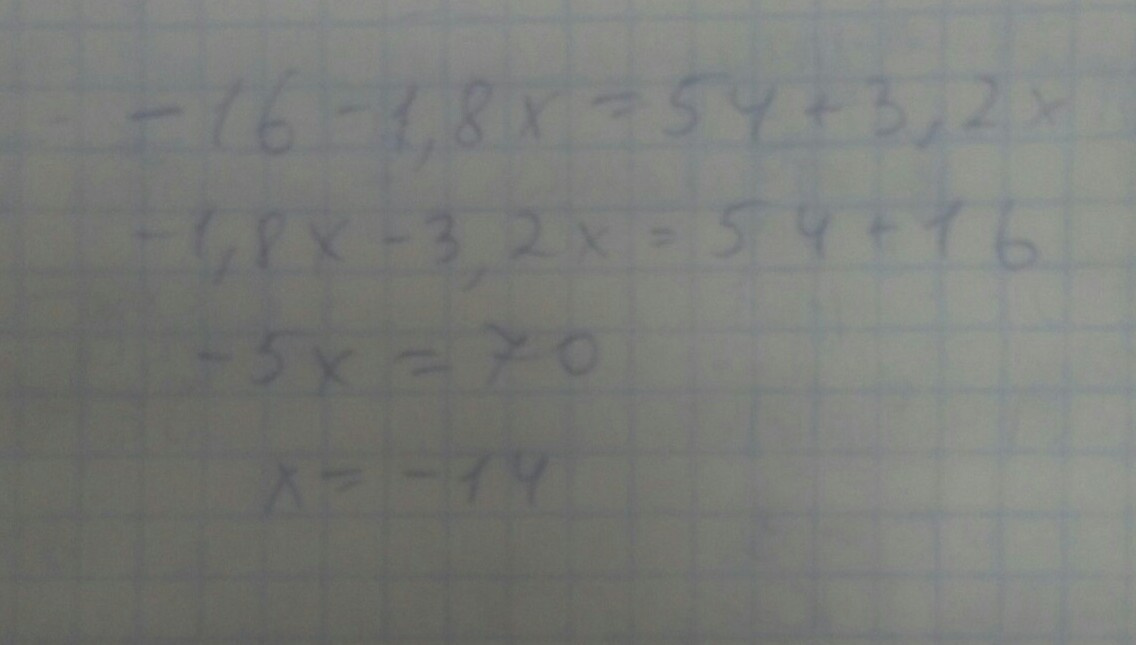 -16-1,8x=54+3,2x
-1,8x-3,2x=54+16
-5x=70
x=-14